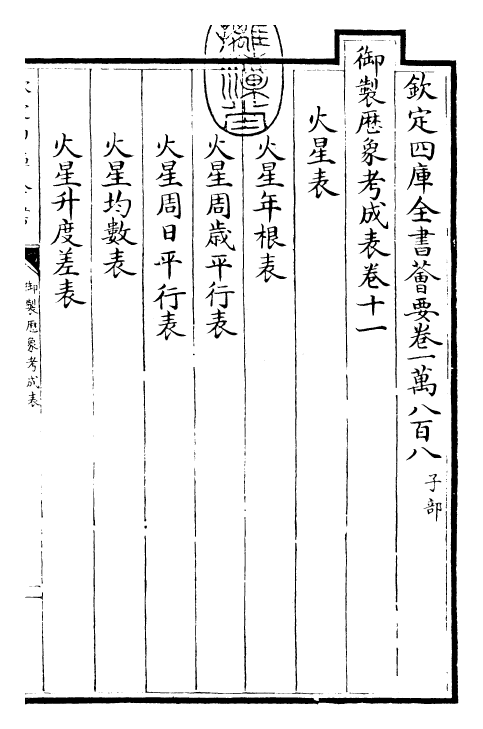 欽定四庫全書薈要卷一萬八百八 子部
御製厯象考成表卷十一
火星表
火星年根表
火星周歲平行表
火星周日平行表
火星均數表
火星升度差表
御製厯象考成表
一